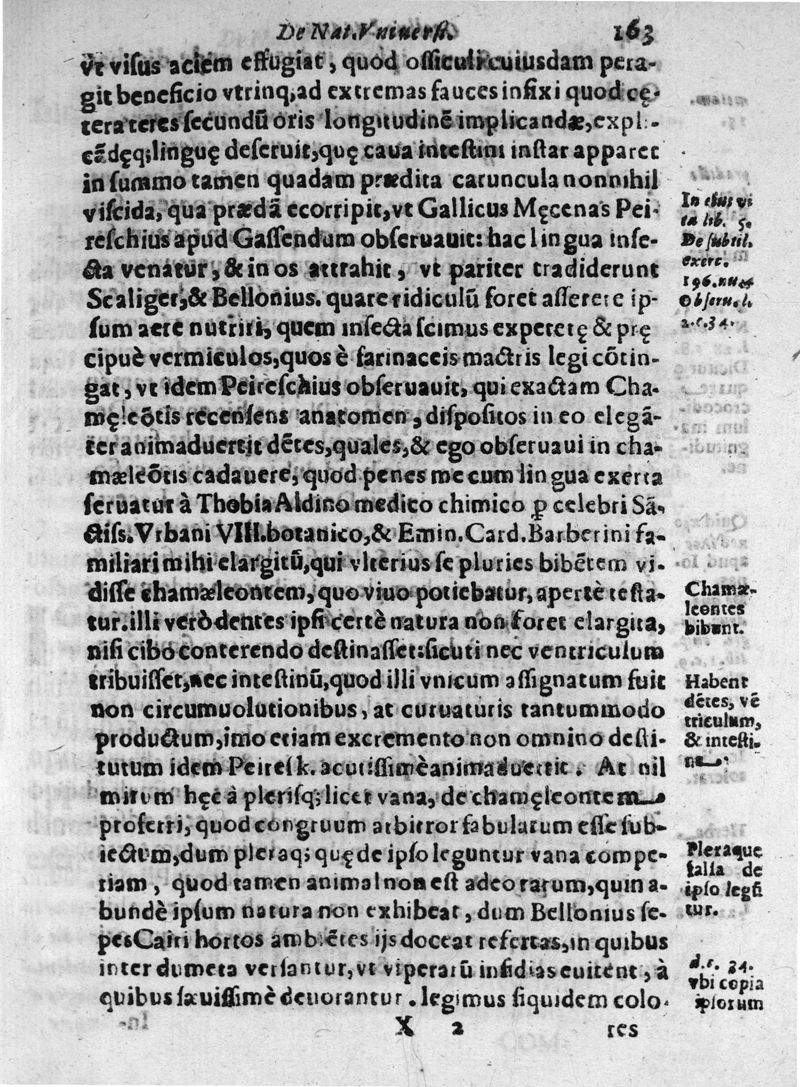 De Nat. Vniuersi.
163
vt visus aciem effugiat, quod ossiculi cuiusdam pera-
git beneficio vtrinq; ad extremas fauces infixi quod cę-
tera teres secundũ oris longitudinẽ implicandæ, expli-
cãdęq; linguę deseruit, quę caua intestini instar apparet
in summo tamen quadam prædita caruncula nonnihil
viscida, qua prædã ecorripit, vt Gallicus Męcenas Pei-
reschius apud Gassendum obseruauit: hac lingua inse-
cta venatur, & in os attrahit, vt pariter tradiderunt
Scaliger, & Bellonius. quare ridiculũ foret asserere ip-
sum aere nutriri, quem insecta scimus expeterę & prę
cipuè vermiculos, quos è farinaceis mactris legi cõtin-
gat, vt idem Peireschius obseruauit, qui exactam Cha-
męleõtis recensens anatomen, dispositos in eo elegã-
ter animaduertit dẽtes, quales, & ego obseruaui in cha-
mæleõtis cadauere, quod penes me cum lingua exerta
seruatur à Thobia Aldino medico chimico ꝑ celebri Sã-
ctiss. Vrbani VIII. botanico, & Emin. Card. Barberini fa-
miliari mihi elargitũ, qui vlterius se pluries bibẽtem vi-
disse chamæleontem, quo viuo potiebatur, apertè testa-
tur. illi verò dentes ipsi certè natura non foret elargita,
nisi cibo conterendo destinasset: sicuti nec ventriculum
tribuisset, nec intestinũ, quod illi vnicum assignatum fuit
non circumuolutionibus, at curuaturis tantummodo
productum, imo etiam excremento non omnino desti-
tutum idem Peiresk. acutissimè animaduertit. At nil
mirum hęc à plerisq; licet vana, de chamęleontem
proferri, quod congruum arbitror fabularum esse sub-
iectum, dum pleraq; quę de ipso leguntur vana compe-
riam, quod tamen animal non est adeo rarum, quin a-
bundè ipsum natura non exhibeat, dum Bellonius se-
pes Cairi hortos ambiẽtes ijs doceat refertas, in quibus
inter dumeta versantur, vt viperarũ insidias euitent, à
quibus sæuissimè deuorantur. legimus siquidem colo-
X 2
res
In eius vi
ta lib. 5.
De subtil.
exerc.
196. nu. 4
Obseru. l.
2. c. 34.
Chamæ-
leontes
bibunt.
Habent
dẽtes, vẽ
triculum,
& intesti-
na.
Pleraque
falsa de
ipso legũ
tur.
d. c. 34.
vbi copia
ipsorum